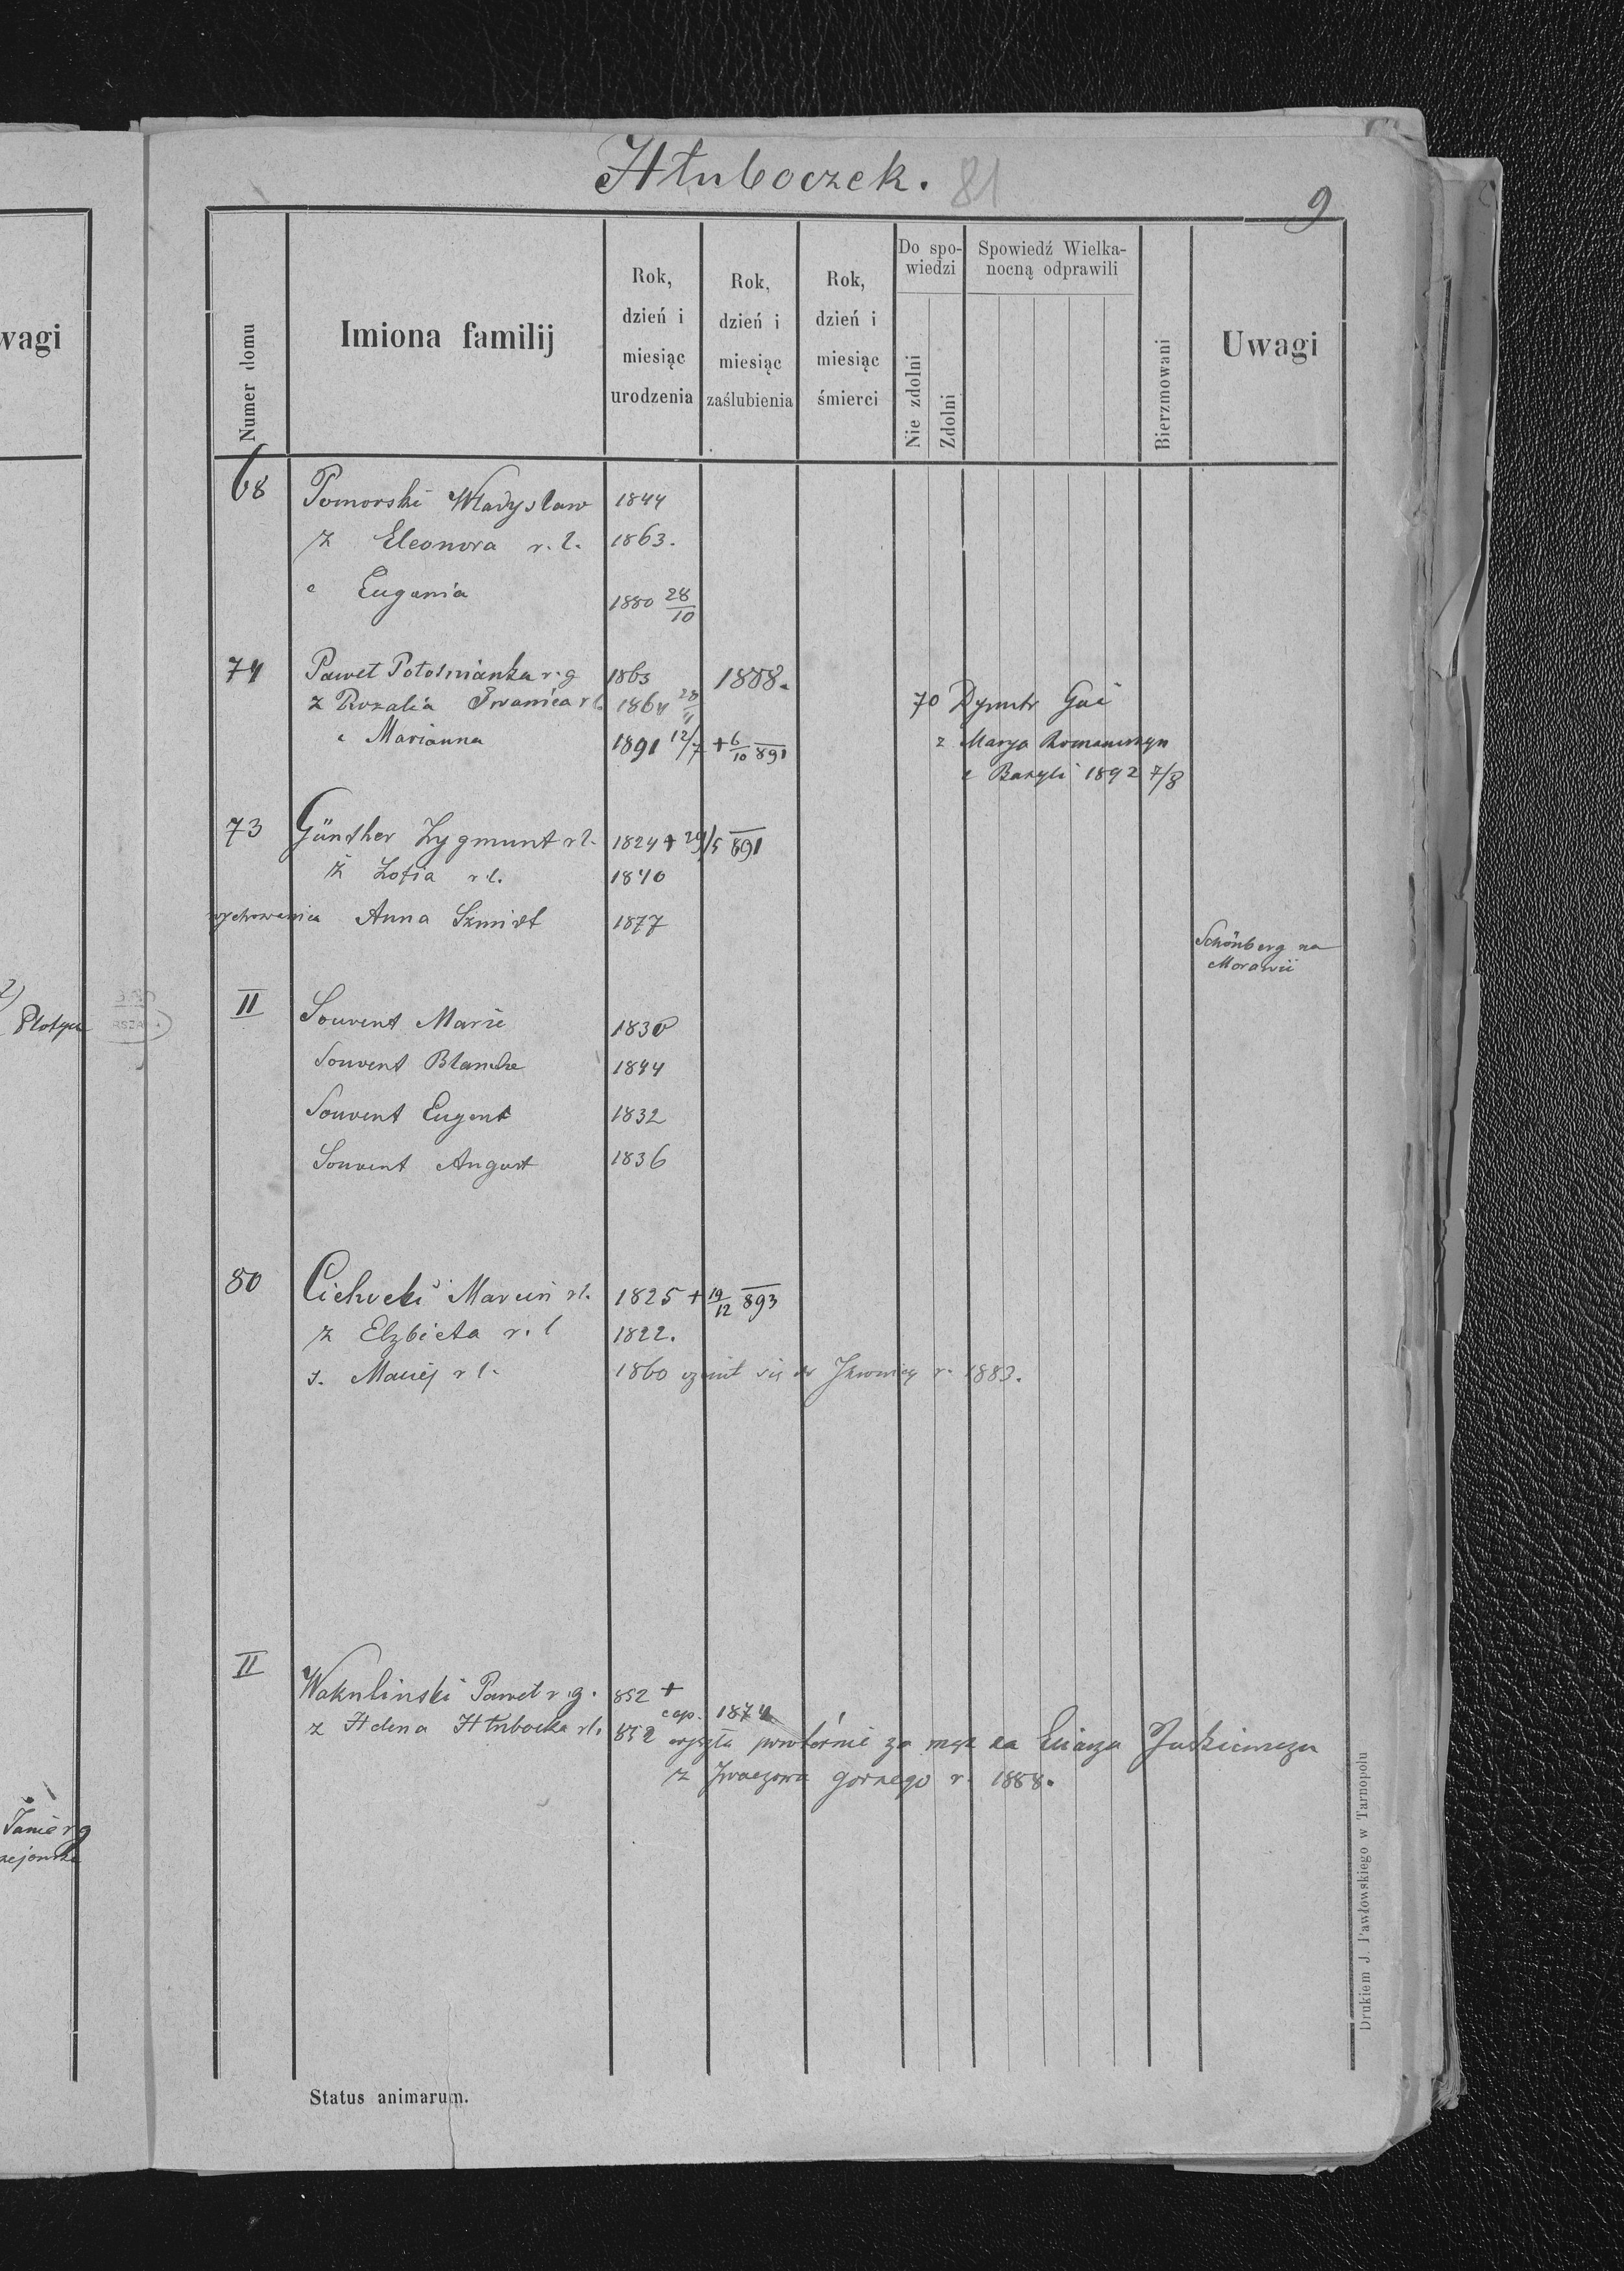 Hłuboczek. 81
9
Numer domu
Imiona familij
Rok, dzień i miesiąc urodzenia
Rok, dzień i miesiąc zaślubienia
Rok, dzień i miesiąc śmierci
Do spo-
wiedzi
Nie zdolni
Zdolni
Spowiedź Wielka-
nocną odprawili
Bierzmowani
Uwagi
wagi
68 Pomorski Władysław 1844
ż Eleonora r. l. 1863.
c Eugenia 1880 28/10
74 Paweł r. g 1863 1888.
ż Rozalia r l. 1864
c Marianna 1891 12/7 + 6/10 891
70 Dymitr
ż Marya Romanczyn
c Bazyli 1892 7/8
73 Günther Zygmunt r l. 1824 + 29/5 891
ż Zofia r. l. 1840
wychowanica Anna Szmidt 1877
Schönberg na
Morawii
II Souvent Marie 1830
Souvent Blanche 1844
Souvent Eugene 1832
Souvent August 1836
80 Cichocki Marcin r l. 1825 + 19/12 893
ż Elżbieta r. l 1822.
s. Maciej r l. 1860 ożenił się do r. 1883.
II
Wakulinski Paweł r. g. 852 +
cop. 1874
ż Helena Hłubocka rl. 852 wyszła powtórnie za mąż za
z górnego r. 1888.
Płotycz
Status animarum.
Drukiem J. Pawłowskiego w Tarnopolu